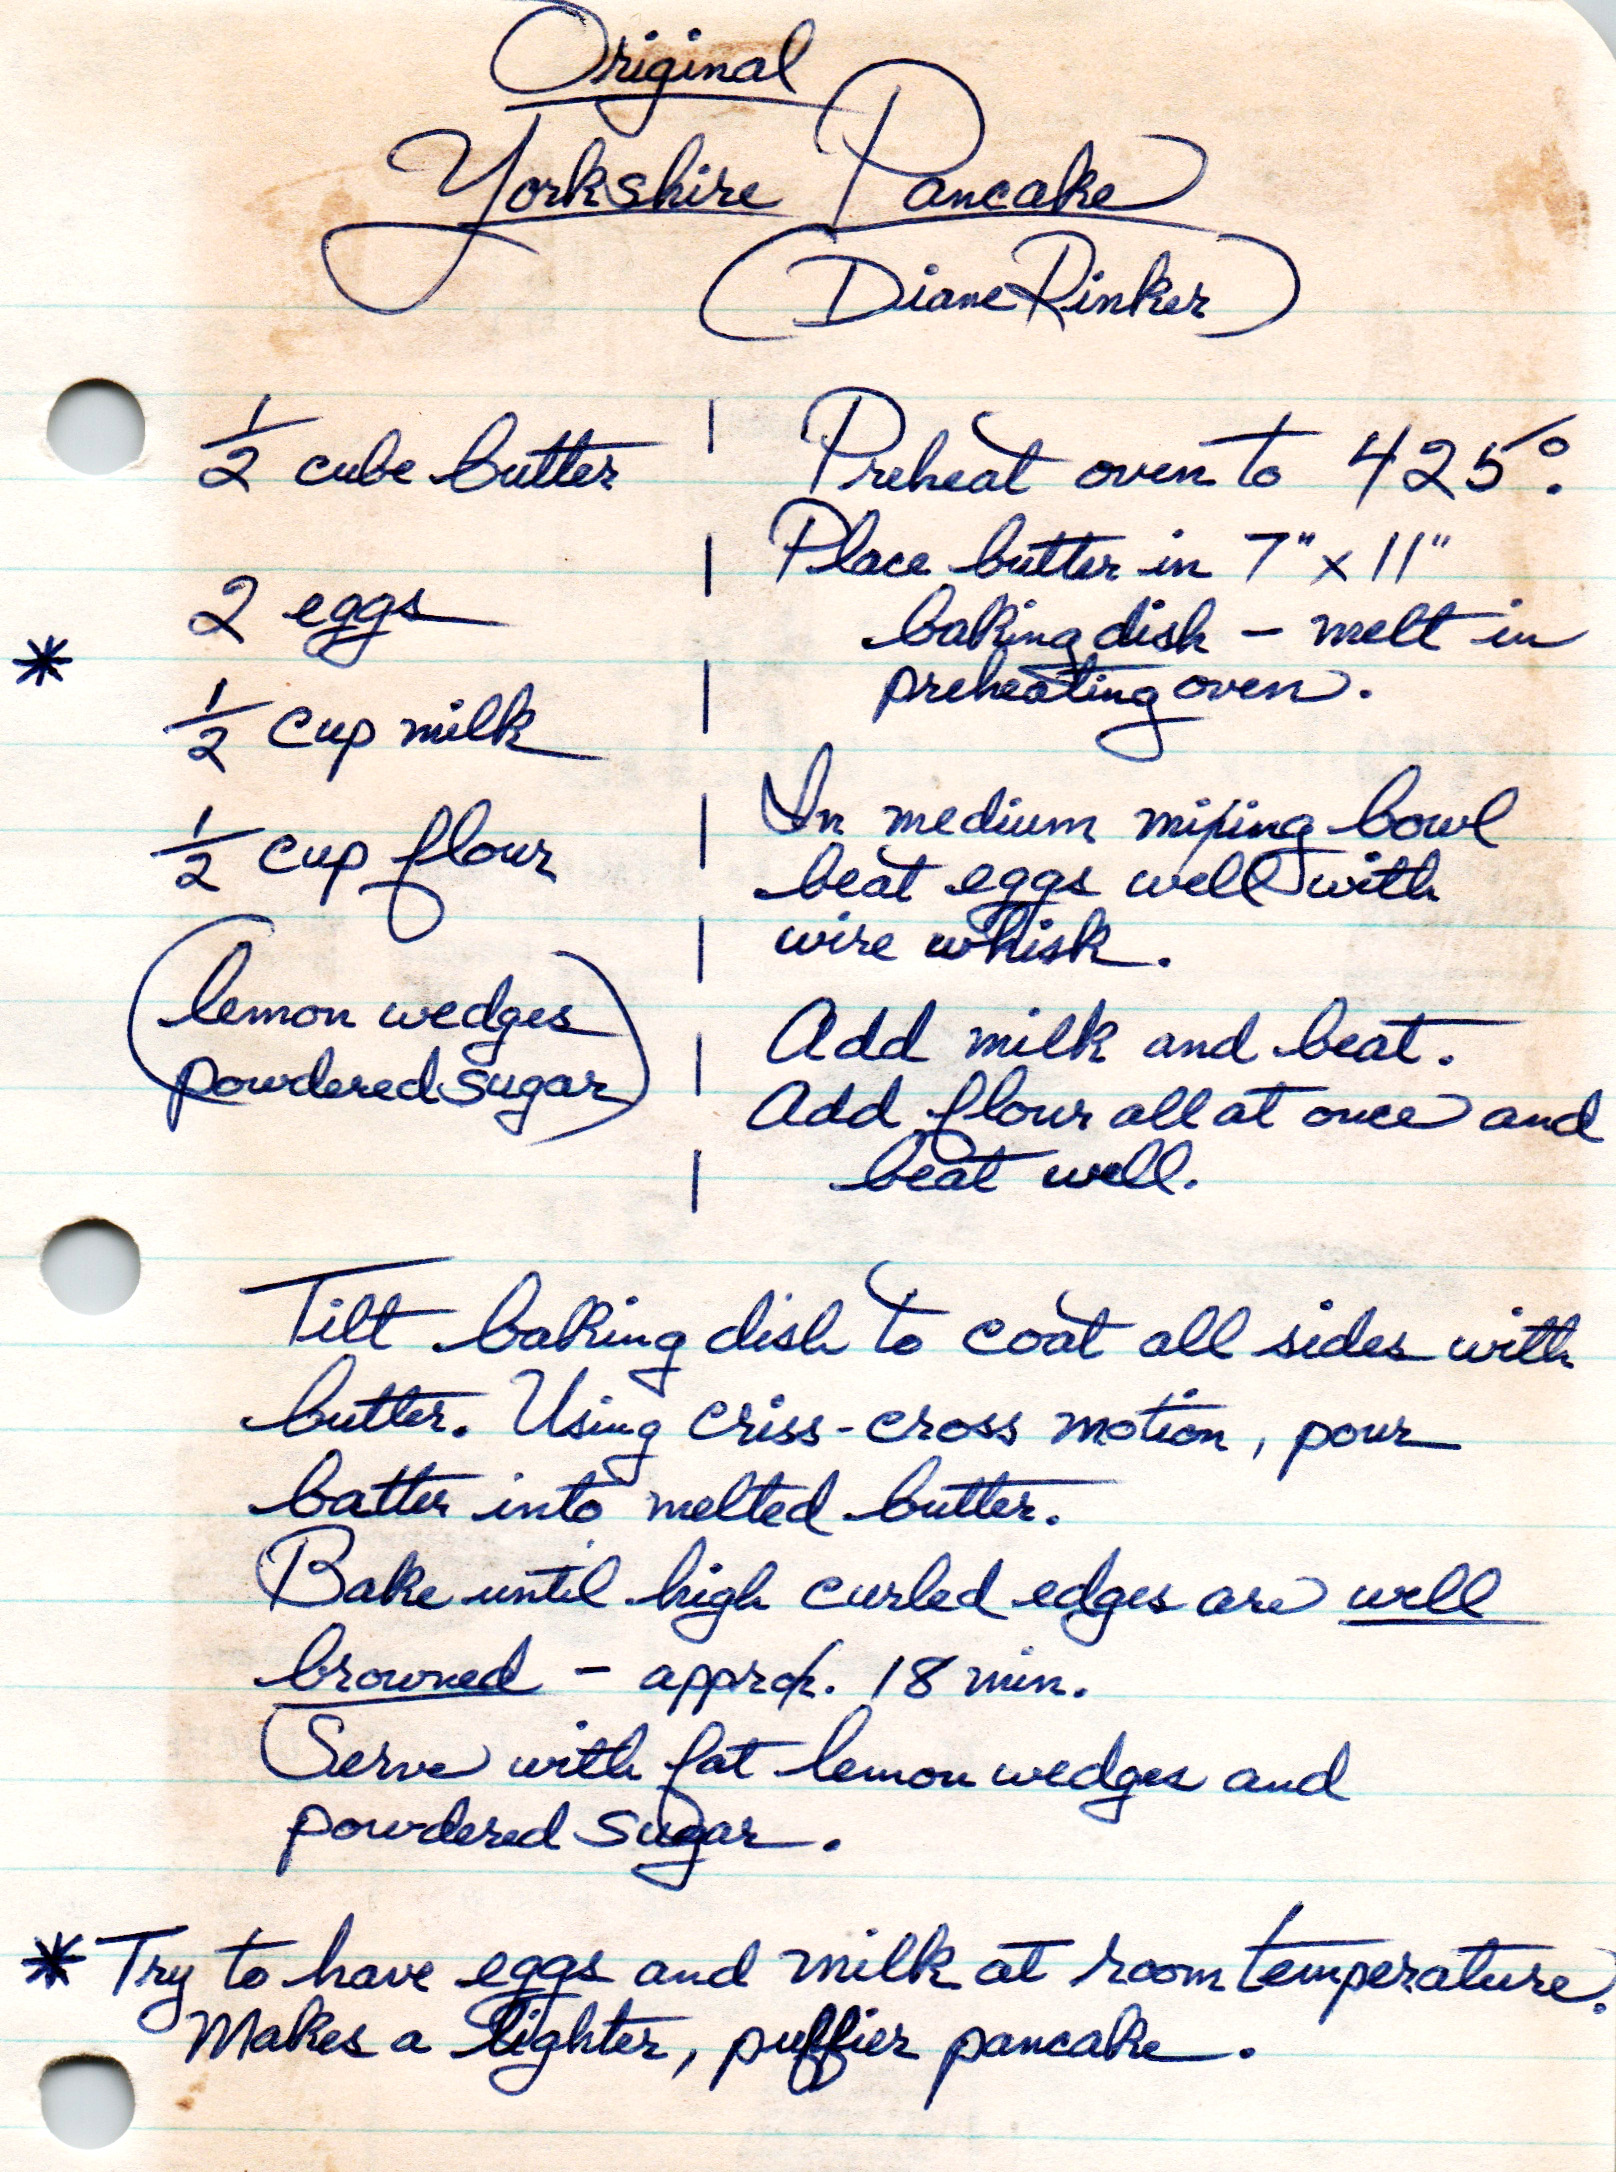 Original
Yorkshire Pancake
(Diane Rinker)
1/2 cube butter
2 eggs
*
1/2 cup milk
1/2 cup flour
(lemon wedges
powdered sugar)
Preheat oven to 425°.
Place butter in 7" x 11"
baking dish - melt in
preheating oven.
In medium mixing bowl
beat eggs well with
wire whisk.
Add milk and beat.
Add flour all at once and
beat well.
Tilt baking dish to coat all sides with
butter. Using criss-cross motion, pour
batter into melted butter.
Bake until high curled edges are well
browned - approx. 18 min.
Serve with fat lemon wedges and
powdered sugar.
* Try to have eggs and milk at room temperature.
Makes a lighter, puffier pancake.